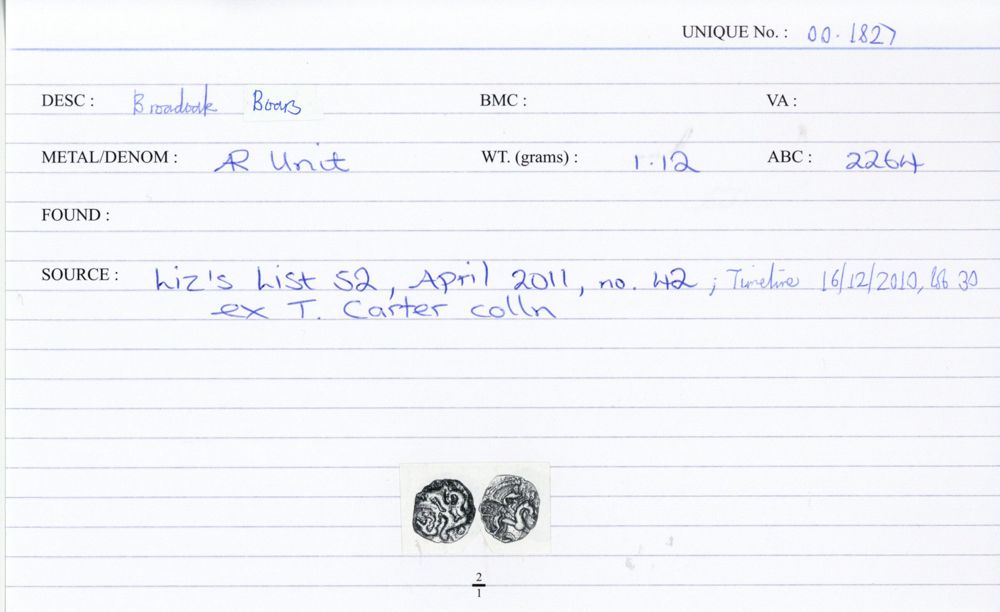 UNIQUE No. : 00.1827
DESC : Broadoak Boars BMC : VA :
METAL/DENOM : AR Unit WT. (grams) : 1.12 ABC : 2264
FOUND :
SOURCE : Liz's List 52, April 2011, no. 42 ; Timeline 16/12/2010, 30
ex T. Carter colln
2
1